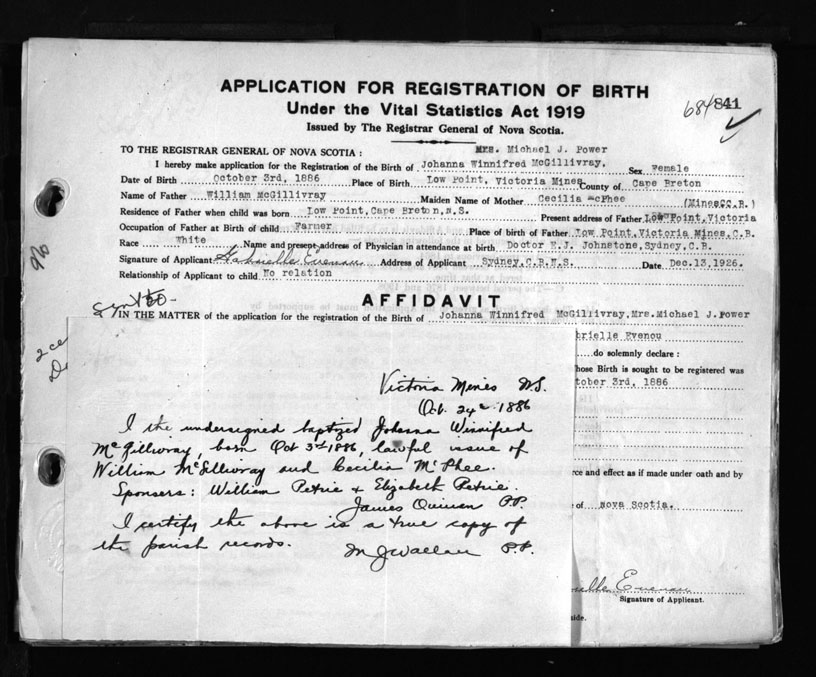 APPLICATION FOR REGISTRATION OF BIRTH
Under the Vital Statistics Act 1919
684 841
Issued by The Registrar General of Nova Scotia.
TO THE REGISTRAR GENERAL OF NOVA SCOTIA : Mrs. Michael J. Power
I hereby make application for the Registration of the Birth of Johanna Winnifred McGillivray. Sex Female
Date of Birth October 3rd, 1886 Place of Birth Low Point, Victoria Mines County of Cape Breton
Name of Father William McGillivray Maiden Name of Mother Cecilia McPhee (Mines C.B.)
Residence of Father when child was born Low Point, Cape Breton, N.S. Present address of Father Low Point, Victoria
Occupation of Father at Birth of child Farmer Place of birth of Father Low Point, Victoria Mines, C.B.
Race White Name and present address of Physician in attendance at birth Doctor E.J. Johnstone, Sydney, C.B.
Signature of Applicant Gabrielle Evenou Address of Applicant Sydney, C.B.N.S. Date Dec. 13, 1926.
Relationship of Applicant to child No relation
AFFIDAVIT
IN THE MATTER of the application for the registration of the Birth of Johanna Winnifred McGillivray, Mrs. Michael J. Power
brielle Evenou
do solemnly declare :
hose Birth is sought to be registered was
tober 3rd, 1886
Victoria Mines N.S.
Oct. 24th 1886
I the undersigned baptized Johanna Winnifred
McGillivray, born Oct 3rd 1886, lawful issue of
William McGillivray and Cecilia McPhee.
Sponsers: William Petrie & Elizabeth Petrie.
James Quinan P.P.
I certify the above is a true copy of
the parish records.
M J Wallace P.P.
rce and effect as if made under oath and by
of Nova Scotia.
ielle Evenou
Signature of Applicant.
ide.